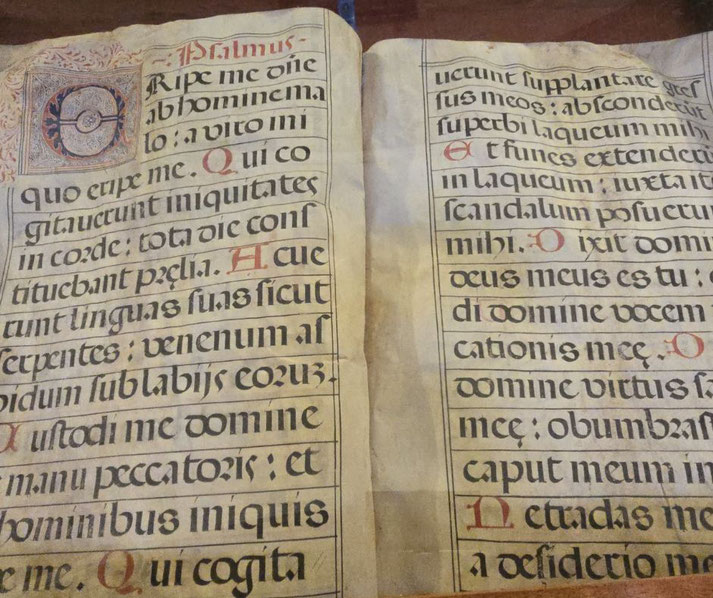 Psalmus
ERipe me dñe
ab homine ma
lo : a viro ini
quo eripe me. Qui co
gitaverunt iniquitates
in corde : tota die cons
tituebant pręlia. Acue
runt linguas suas sicut
serpentes : venenum as
pidum sub labijs eoruꝫ.
Custodi me domine
manu peccatoris : et
hominibus iniquis
me. Qui cogita
verunt supplantare gres
sus meos : absconderūt
superbi laqueum mihi
Et funes extenderū
in laqueum : iuxta it
scandalum posuerun
mihi. Dixit domin
deus meus es tu : e
di domine vocem
cationis meę. D
domine virtus sa
meę : obumbras
caput meum in
Ne tradas me
a desiderio me